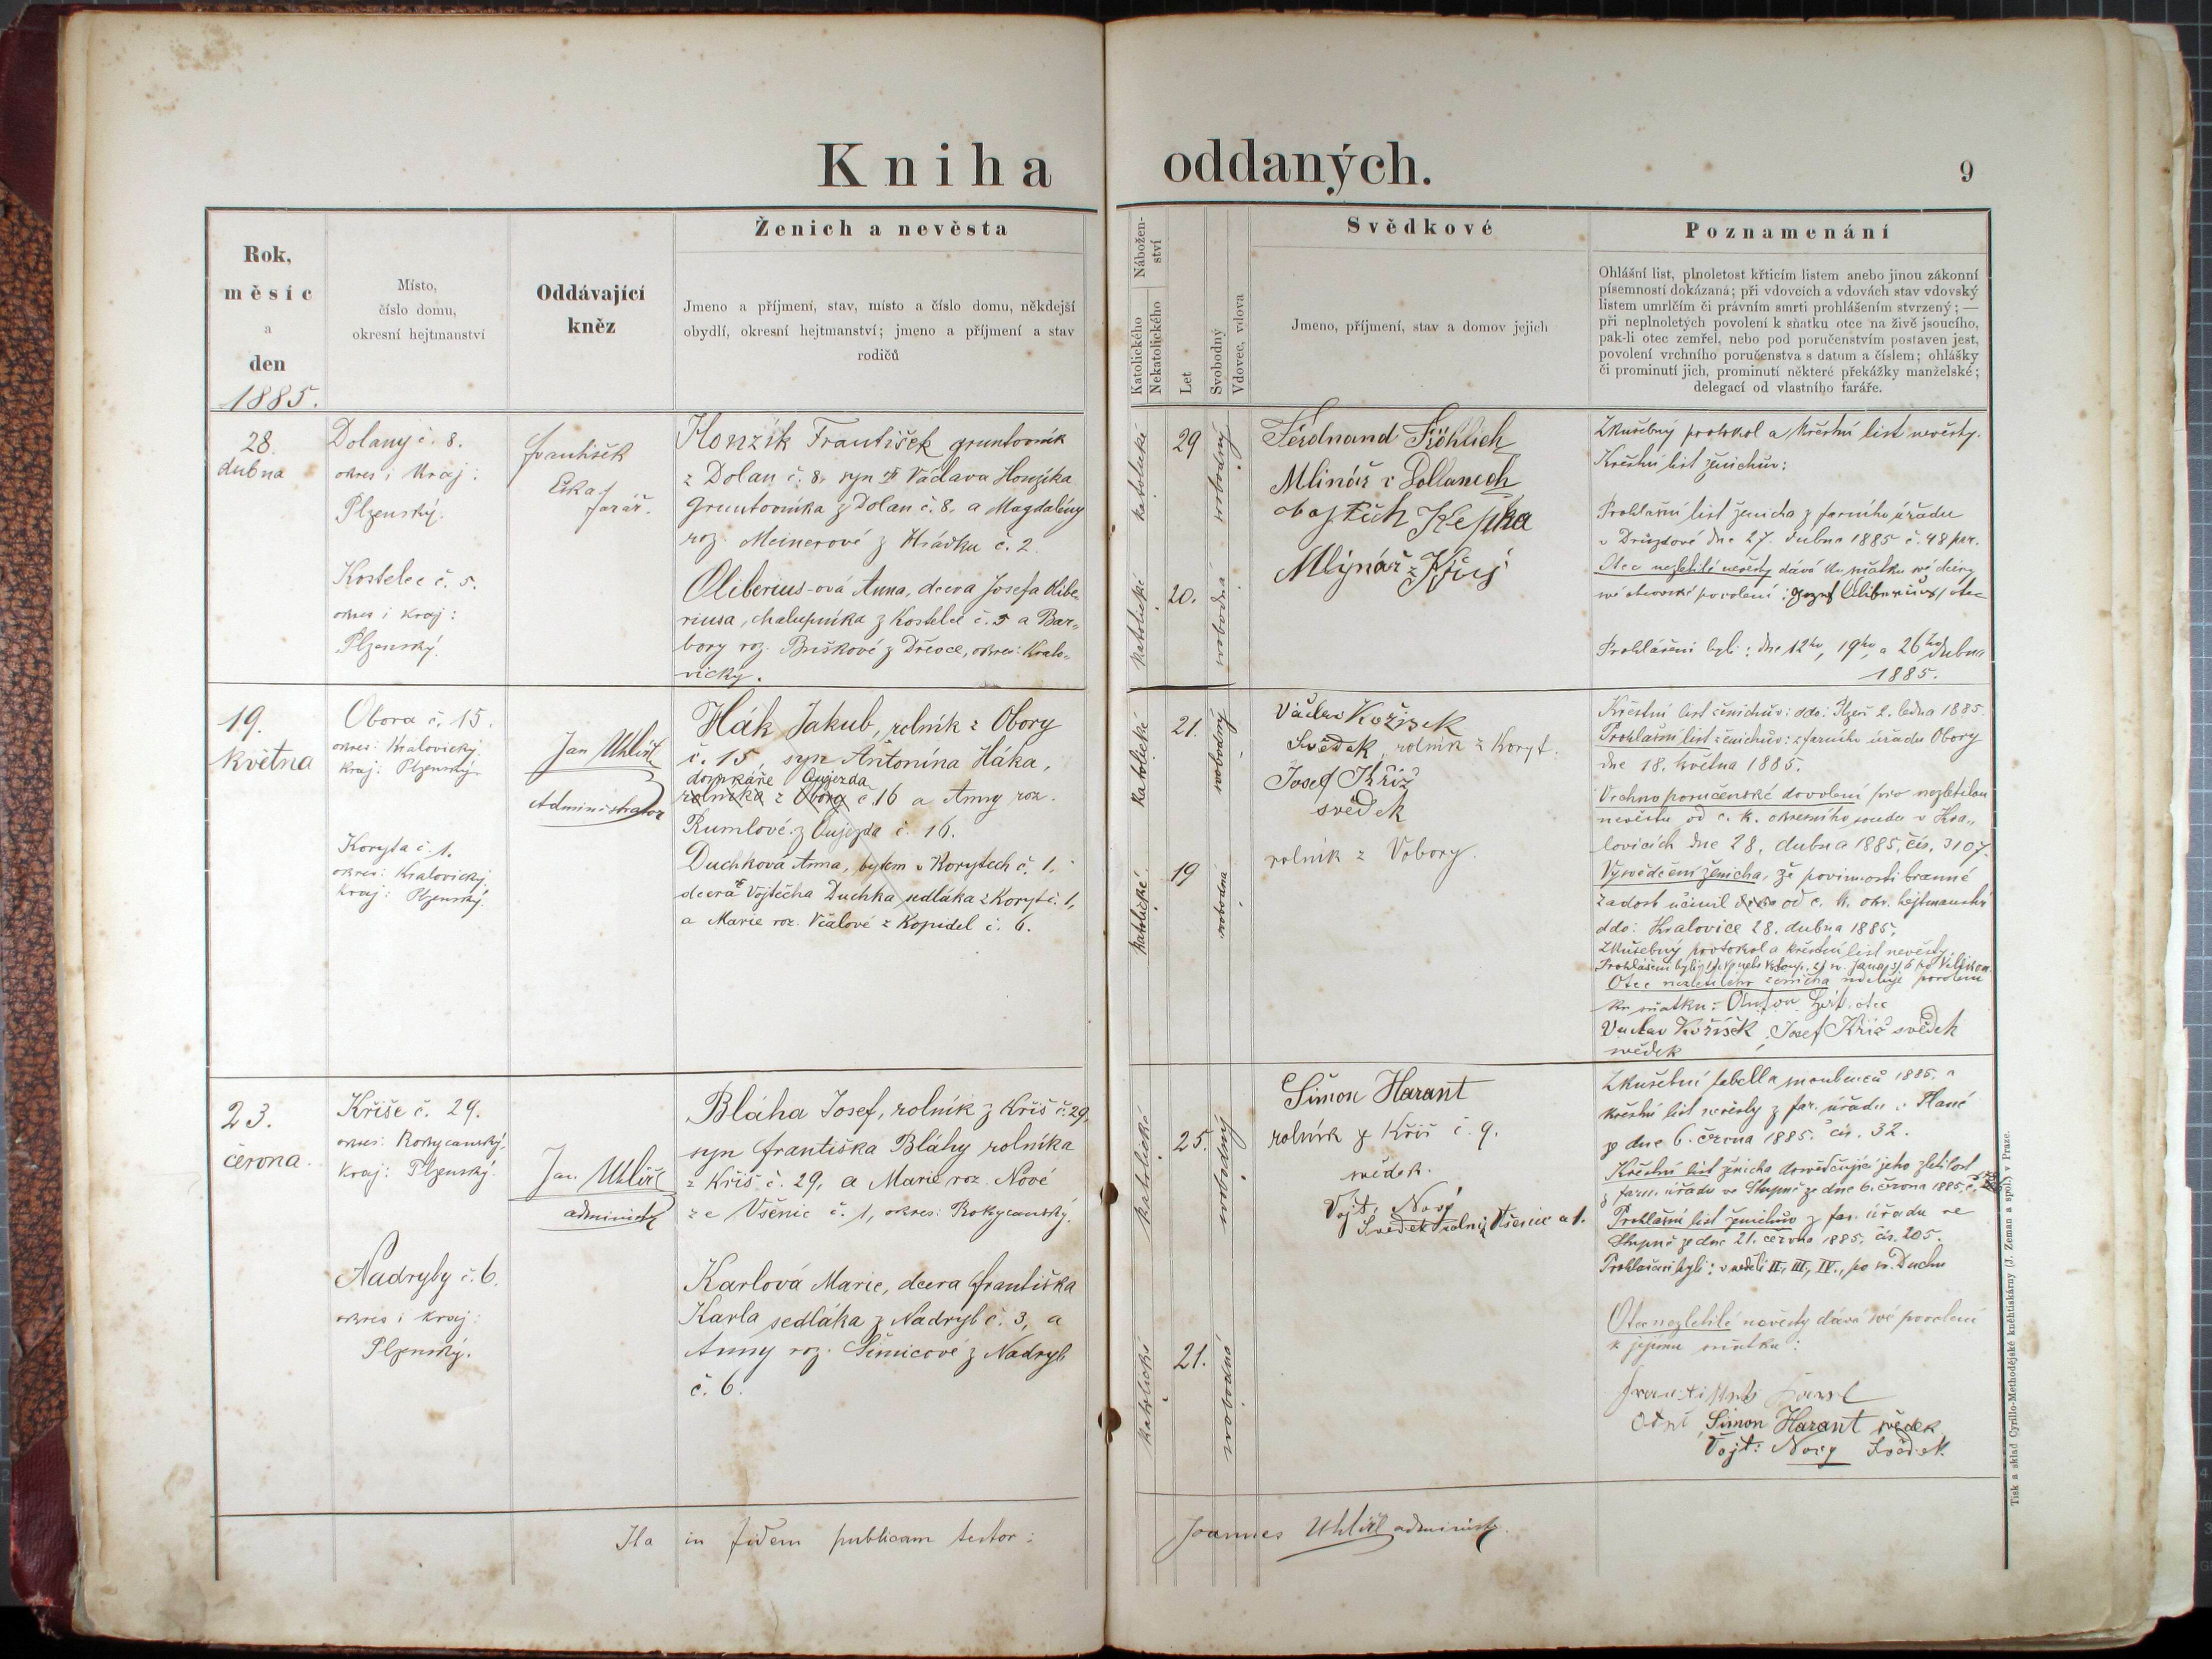 Kniha oddaných.
9
Rok,
měsíc
a
den
1885.
Místo,
číslo domu,
okresní hejtmanství
Oddávající
kněz
Ženich a nevěsta
Jmeno a příjmení, stav, místo a číslo domu, někdejší
obydlí, okresní hejtmanství; jmeno a příjmení a stav
rodičů
Nábožen-
ství
Katolického
Nekatolického
Let
Svobodný
Vdovec, vdova
Svědkové
Jmeno, příjmení, stav a domov jejich
Poznamenání
Ohlášní list, plnoletost křticím listem anebo jinou zákonní
písemností dokázaná; při vdovcích a vdovách stav vdovský
listem umrlčím či právním smrti prohlášením stvrzený; —
při neplnoletých povolení k sňatku otce na živě jsoucího,
pak-li otec zemřel, nebo pod poručenstvím postaven jest,
povolení vrchního poručenstva s datum a číslem; ohlášky
či prominutí jich, prominutí některé překážky manželské;
delegací od vlastního faráře.
28.
dubna
Dolany č. 8.
okres i kraj:
Plzenský.
Kostelec č. 5.
okres i kraj:
Plzenský.
František
farář.
Honzík František gruntovník
z Dolan č. 8, syn Václava Honzíka
gruntovníka z Dolan č. 8, a Magdalény
roz. Meinerové z Hrádku č. 2.
Oliberius-ová Anna, dcera Josefa Olibe-
riusa, chalupníka z Kostelce č. 5 a Bar-
bory roz. Briškové z Dřevce, okres: Kralo-
vický.
katolické
29
svobodný
katolické
20.
svobodná
Ferdnand Fröhlich
Mlinář v Dollanech
Mlýnář z Kříš
Zkušebný protokol a křestní list nevěsty.
Křestní list ženichův:
Prohlašní list ženicha z farního úřadu
v Druztové dne 27. dubna 1885 č. 48 par.
Otec nezletilé nevěsty dává ku sňatku své dcery
své otcovské povolení: Jozef Oliberius otec
Prohlášeni byli: dne 12ho, 19ho, a 26ho dubna
1885.
19.
května
Obora č. 15.
okres: Kralovický.
kraj: Plzenský.
Koryta č. 1.
okres: Kralovický
kraj: Plzenský.
Jan Uhlíř
Administrator
Hák Jakub, rolník z Obory
č. 15, syn Antonína Háka,
doškáře Oujezda
rolníka z Obory č 16 a Anny roz.
Rumlové z Oujezda č. 16.
Duchková Anna, bytem v Korytech č. 1,
dcera Vojtěcha Duchka, sedláka z Koryt č. 1,
a Marie roz. Včalové z Kopidel č. 6.
katolické
21.
svobodný
katolické
19
svobodná
Václav Kožíšek
Svědek, rolník z Koryt.
Josef Kříž
svědek
rolník z Vobory.
Křestní list ženichův: ddo: Plzeň 2. ledna 1885.
Prohlašní list ženichův: z farního úřadu Obory
dne 18. května 1885.
Vrchnoporučenské dovolení pro nezletilou
nevěstu od c. k. okresního soudu v Kra-
lovicích dne 28. dubna 1885, čís. 3107.
Vysvědčení ženicha, že povinnosti branné
zadost učinil od c. k. okr. hejtmanství
ddo: Kralovice 28. dubna 1885.
Zkušebný protokol a křestní list nevěsty.
Otec nezletilého ženicha uděluje povolení
ku sňatku: otec
Václav Kožíšek, Josef Kříž svědek
svědek
23.
června.
Kříše č. 29.
okres: Rokycanský.
kraj: Plzenský.
Nadryby č. 6.
okres i kraj:
Plzenský.
Jan Uhlíř
administr
Bláha Josef, rolník z Kříš č. 29,
syn Františka Bláhy rolníka
z Kříš č. 29, a Marie roz. Nové
ze Všenic č. 1, okres: Rokycanský.
Karlová Marie, dcera Františka
Karla sedláka z Nadryb č. 3, a
Anny roz. Šimicové z Nadryb
č. 6.
katolické
25.
svobodný
katolické
21.
svobodná
Šimon Harant
rolník z Kříš č. 9.
svědek.
Vojt. Nový
Svědek rolník Všenic č 1.
Zkušební tabella snoubenců 1885. a
křestní list nevěsty z far. úřadu v Plané
ze dne 6. června 1885. čís. 32.
Křestní list ženicha dosvědčující jeho zletilost
z farn. úřadu ve Stupně ze dne 6. června 1885, č.
Prohlašní list ženichův z far. úřadu ve
Stupně ze dne 21. června 1885. čís. 205.
Prohlašeni byli: v neděli II., III., IV., po sv. Duchu
Otec nezletilé nevěsty dává své povolení
k jejímu sňatku:
František Karel
Šimon Harant svědek
Vojt. Nový Svědek
Ita in fidem publicam testor:
Joannes Uhlíř administr.
Tisk a sklad Cyrillo-Methodějské kněhtiskárny (J. Zeman a spol.) v Praze.